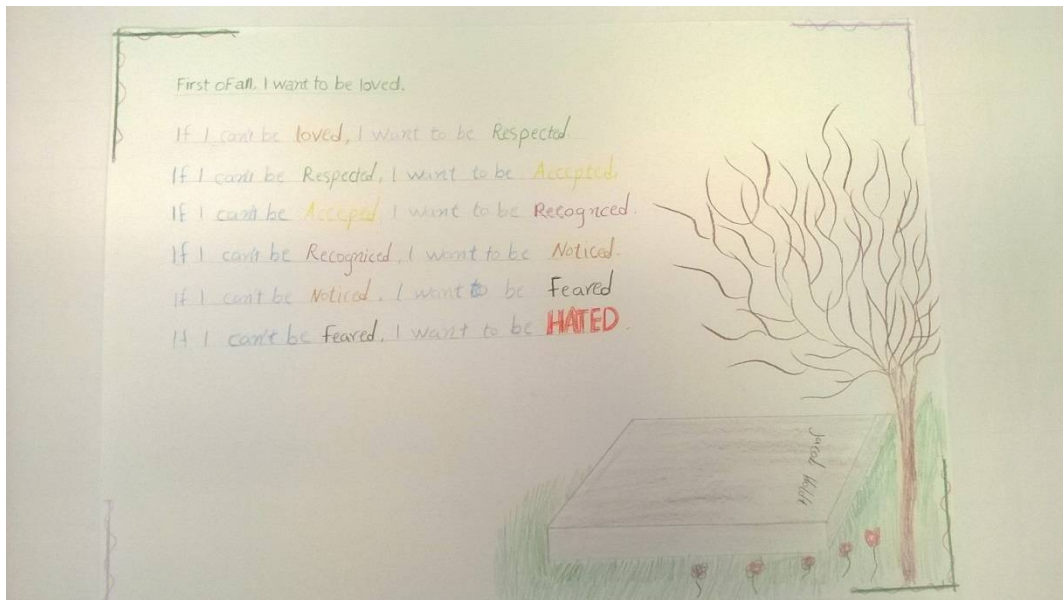 First oFall, I want to be loved.
If I can't be loved, I want to be Respected.
If I can't be Respected, I want to be Accepted.
If I can't be Acceped I want to be Recognced.
If I can't be Recogniced, I want to be Noticed.
If I can't be Noticed, I want to be Feared
If I can't be feared, I want to be HATED.